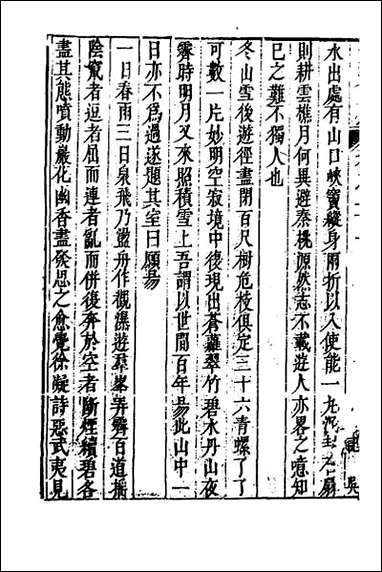 水出處有山口峽竇縱身兩折以入使能一丸泥封之扃
則耕雲樵月何異避秦桃源然志不載遊人亦畧之噫知
已之難不獨人也
冬山雪後遊徑盡閉百尺樹危枝俱定三十六青螺了了
可數一片妙明空寂境中後現出蒼蘿翠竹碧水丹山夜
霽時明月又來照積雪上吾謂以世間百年易此山中一
日亦不為過遂題其室曰願易
一日春雨三日泉飛乃盪舟作觀瀑遊羣峯弄霽百道搖
陰竄者逗者屈而連者亂而併後奔於空者斷煙續碧各
盡其態噴動巖花幽香盡發思之愈覺徐凝詩惡武夷見